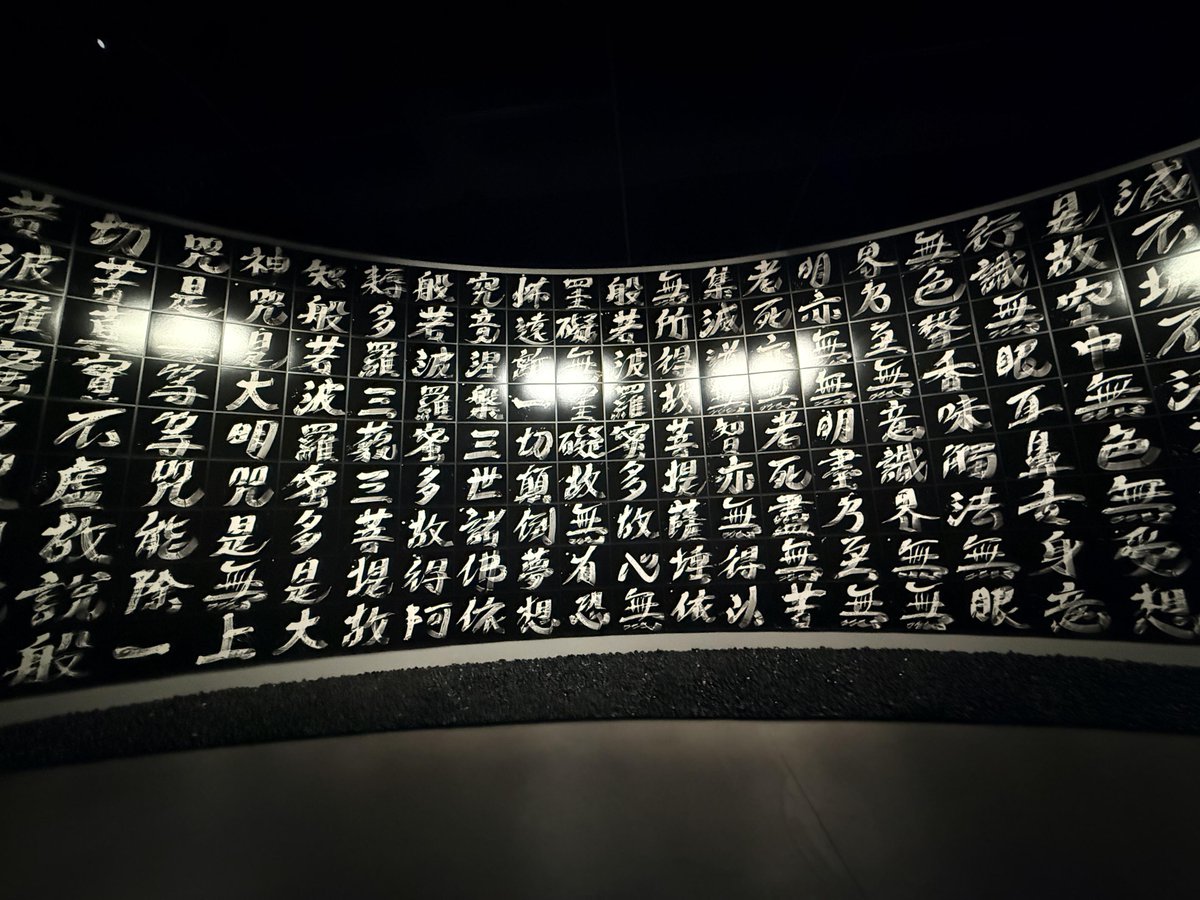 滅不垢不
是故空中無色無受想
行識無眼耳鼻舌身意
無色聲香味觸法無眼
界乃至無意識界無無
明亦無無明盡乃至無
老死亦無老死盡無苦
集滅道無智亦無得以
無所得故菩提薩埵依
般若波羅蜜多故心無
罣礙無罣礙故無有恐
怖遠離一切顛倒夢想
究竟涅槃三世諸佛依
般若波羅蜜多故得阿
耨多羅三藐三菩提故
知般若波羅蜜多是大
神咒是大明咒是無上
咒是無等等咒能除一
切苦真實不虛故說般
若波羅蜜多